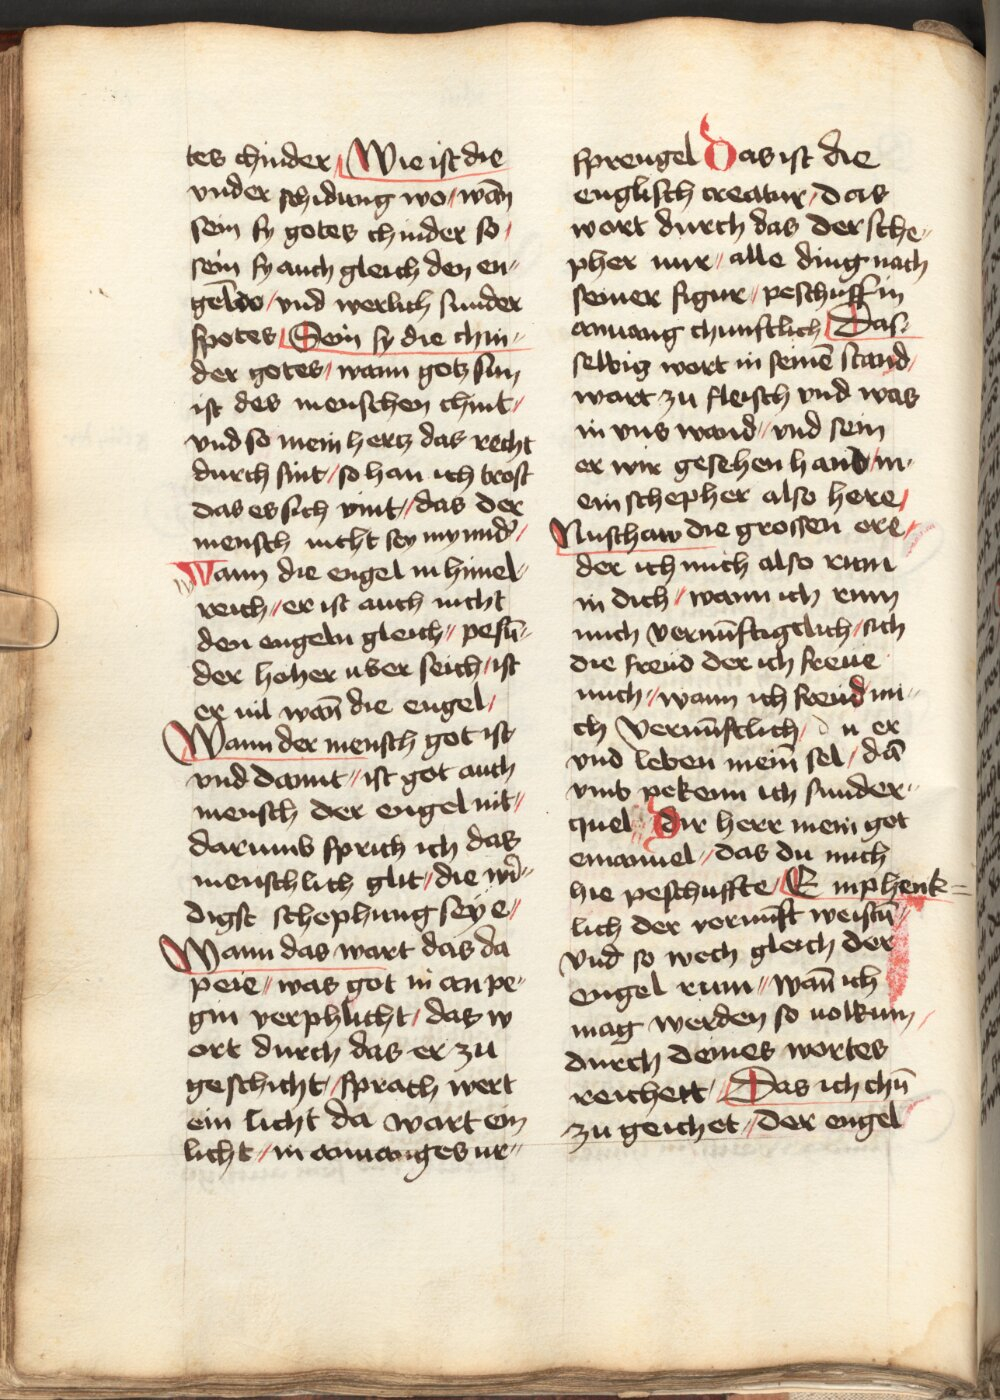 tes chinder / Wie ist die
vnder schidung wo / wan̄
sein sy gotes chinder so /
sein sy auch gleich den en〃
gel̄do / vnd werlich sunder
spotes / Sein sy die chin〃
der gotes / wann gotz sun
ist des menschen chint /
vnd so mein hertz das recht
durch sint / so han ich trost
das es sich vint / das der
mensch nicht sey mynnd̾ /
Wann die engel in himel〃
reich / er ist auch nicht
den engeln gleich / pesū〃
der hoher uber seich / ist
er vil wan̄ die engel /
Wann der mensch got ist
vnd damit / ist got auch
mensch der engel nit /
darumb sprich ich das
menschlich glit / die wi̾〃
digst schephung sey e /
Wann das wart das da
peie / was got in an pe〃
gin verphlicht / das w
ort durch das er zu
geschicht / sprach wert
ein licht da wart ein
licht / in anuanges ur〃
sprengel Das ist die
englisch creatur / das
wort durch das der sche〃
pher nur / alle ding nach
seiner figur / peschuff in
anuang chunstlich / Das
selbig wort in seinē stand /
wart zu fleisch vnd was
in vns wand / vnd sein
er wir gesehen hand / in
ein schepher also here /
Nu schaw die grossen ere /
der ich mich also rum
in dich / wann ich rum
mich vernūftigtlich / sich
die freud der ich freue
mich / wann ich freud mi〃
ch vernūftlich / du er
vnd leben mein̄ sel / dā
vmb pekenn ich sunder〃
quel Dir herr mein got
emanuel / das du mich
hie peschuffte / Emphenk〃
lich der vernūft weistū〃
vnd so wech gleich der
engel rum / wan̄ ich
mag werden so uolkum /
durch deines wortes
reichett / Das ich chū
zu geichet / der engel